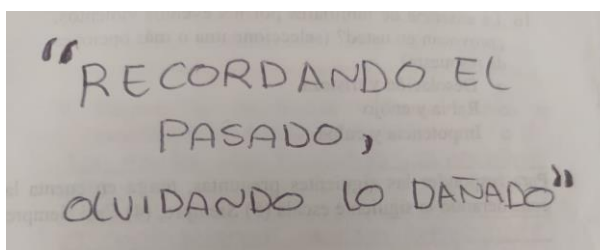 “RECORDANDO EL
PASADO,
OLVIDANDO LO DAÑADO”